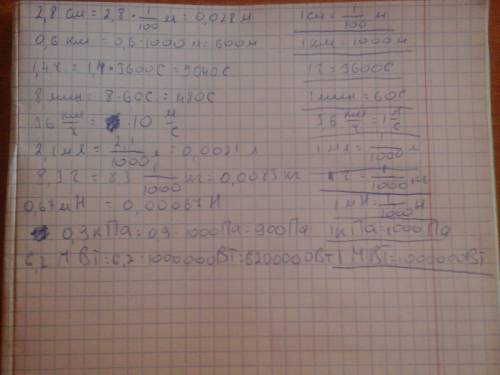 2,8 см = 2,8 · 1/100 м = 0,028 м 1 см = 1/100 м
0,6 км = 0,6 · 1000 м = 600 м 1 км = 1000 м
1,4 ч = 1,4 · 3600 с = 5040 с 1 ч = 3600 с
8 мин = 8 · 60 с = 480 с 1 мин = 60 с
36 км/ч = 10 м/с 36 км/ч = м/с
2,1 мл = 2,1/1000 л = 0,0021 л 1 мл = 1/1000 л
8,3 г = 8,3 1/1000 кг = 0,0083 кг 1 г = 1/1000 кг
0,67 мН = 0,00067 Н 1 мН = 1/1000 Н
0,9 кПа = 0,9 · 1000 Па = 900 Па 1 кПа = 1000 Па
6,2 МВт = 6,2 · 1000000 Вт = 6200000 Вт 1 МВт = 1000000 Вт